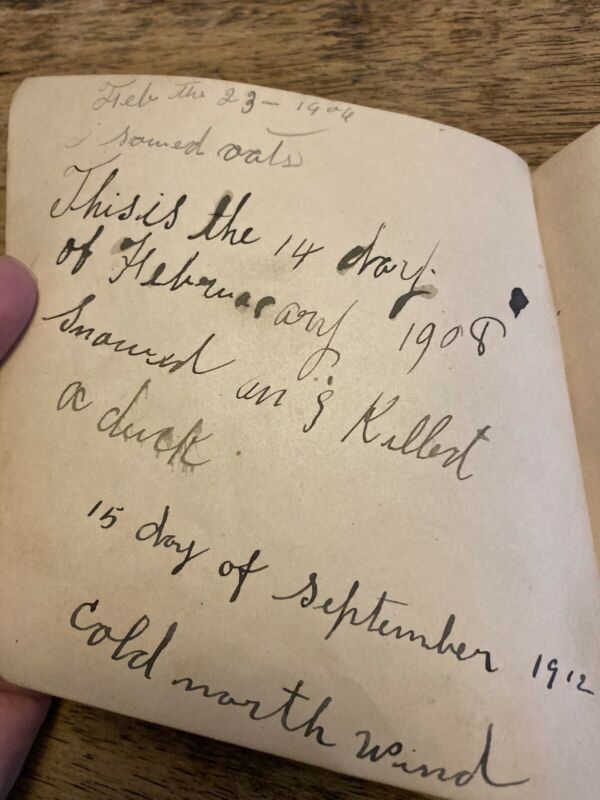 Feb the 23 - 1904
I sowed oats
This is the 14 day
of Februarary 1908
Snowed an I Killed
a duck
15 day of September 1912
Cold north wind